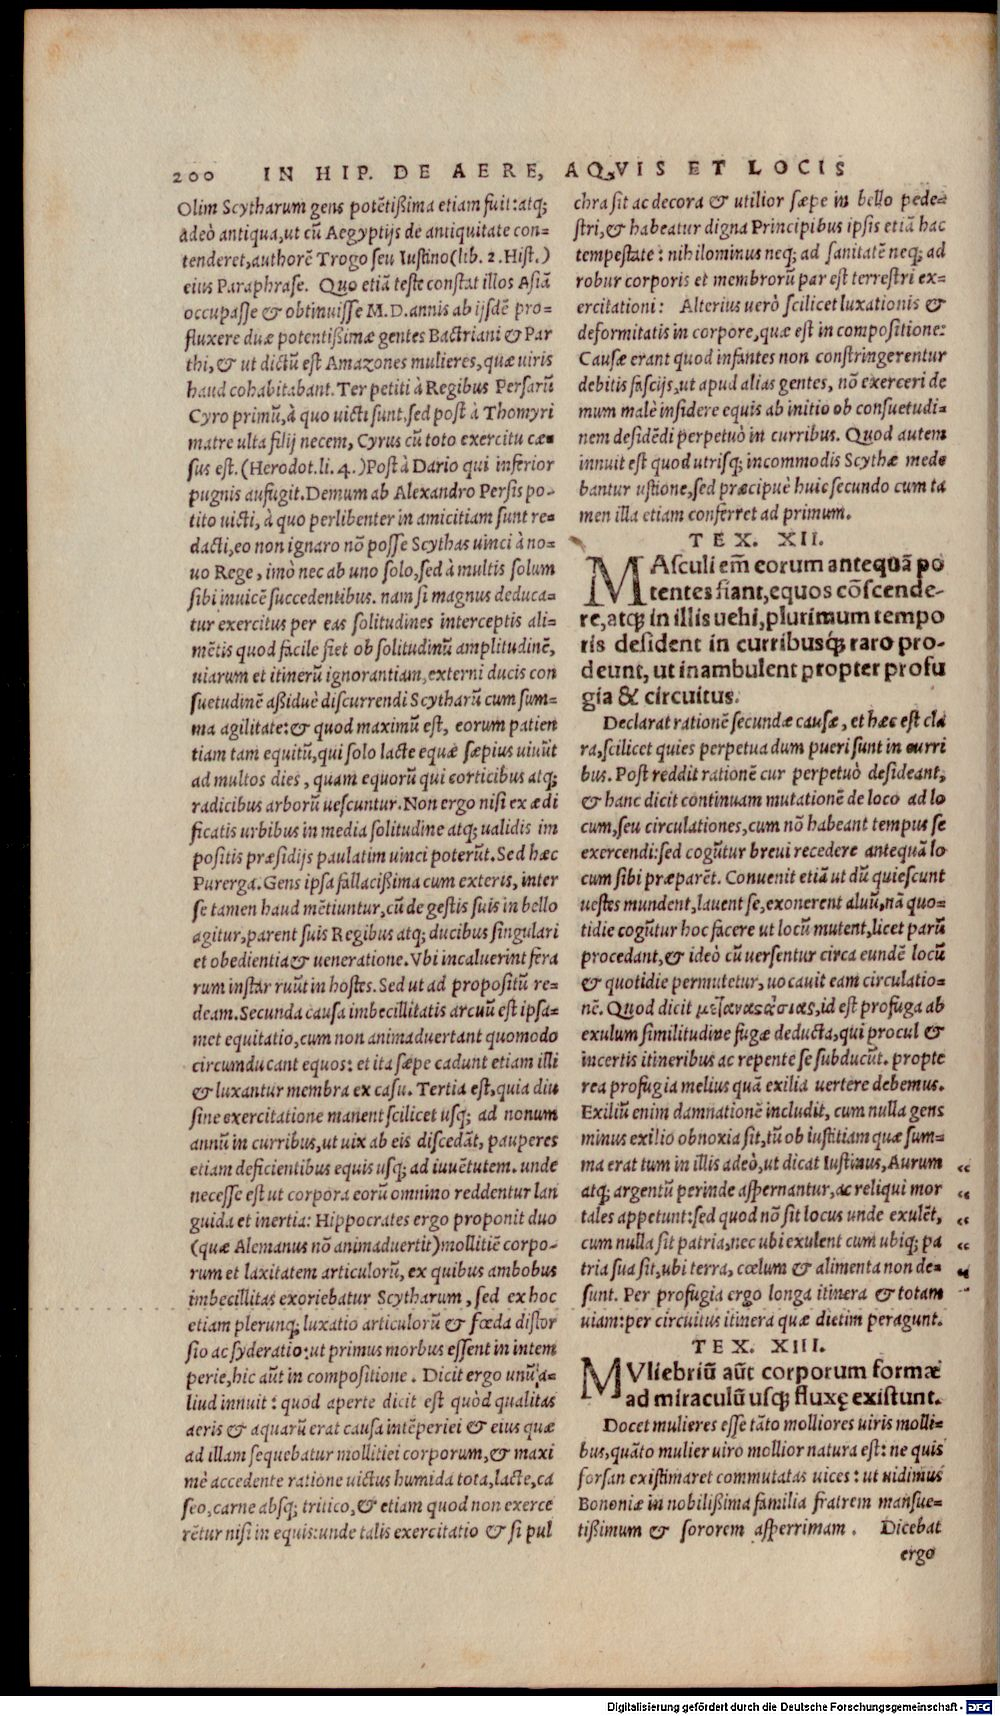 200 IN HIP. DE AERE, AQVIS ET LOCIS
Olim Scytharum gens potẽtißima etiam fuit: atq;
adeò antiqua, ut cũ Aegyptijs de antiquitate con=
tenderet, authorẽ Trogo seu Iustino (lib. 2. Hist.)
eius Paraphrase. Quo etiã teste constat illos Asiã
occupasse & obtinuisse M.D. annis ab ijsdẽ pro=
fluxere duæ potentißimæ gentes Bactriani & Par
thi, & ut dictũ est Amazones mulieres, quæ uiris
haud cohabitabant. Ter petiti à Regibus Persarũ
Cyro primũ, à quo uicti sunt, sed post à Thomyri
matre ulta filij necem, Cyrus cũ toto exercitu cæ=
sus est. (Herodot. li. 4.) Post à Dario qui inferior
pugnis aufugit. Demum ab Alexandro Persis po-
tito uicti, à quo perlibenter in amicitiam sunt re=
dacti, eo non ignaro nõ posse Scythas uinci à no-
uo Rege, imò nec ab uno solo, sed à multis solum
sibi inuicẽ succedentibus. nam si magnus deduca=
tur exercitus per eas solitudines interceptis ali=
mẽtis quod facile fiet ob solitudinũ amplitudinẽ,
uiarum et itinerũ ignorantiam, externi ducis con
suetudinẽ aßiduè discurrendi Scytharũ cum sum=
ma agilitate: & quod maximũ est, eorum patien
tiam tam equitũ, qui solo lacte equæ sæpius uiuũt
ad multos dies, quam equorũ qui corticibus atq;
radicibus arborũ uescuntur. Non ergo nisi ex ædi
ficatis urbibus in media solitudine atq; ualidis im
positis præsidijs paulatim uinci poterũt. Sed hæc
Purerga. Gens ipsa fallacißima cum exteris, inter
se tamen haud mẽtiuntur, cũ de gestis suis in bello
agitur, parent suis Regibus atq; ducibus singulari
et obedientia & ueneratione. Vbi incaluerint fera
rum instar ruũt in hostes. Sed ut ad propositũ re=
deam. Secunda causa imbecillitatis arcuũ est ipsa=
met equitatio, cum non animaduertant quomodo
circumducant equos: et ita sæpe cadunt etiam illi
& luxantur membra ex casu. Tertia est, quia diu
sine exercitatione manent scilicet usq; ad nonum
annũ in curribus, ut uix ab eis discedãt, pauperes
etiam deficientibus equis usq; ad iuuẽtutem. unde
necesse est ut corpora eorũ omnino reddentur lan
guida et inertia: Hippocrates ergo proponit duo
(quæ Alemanus nõ animaduertit) mollitiẽ corpo-
rum et laxitatem articulorũ, ex quibus ambobus
imbecillitas exoriebatur Scytharum, sed ex hoc
etiam plerunq; luxatio articulorũ & fœda distor
sio ac syderatio: ut primus morbus essent in intem
perie, hic aũt in compositione. Dicit ergo unũ, a=
liud innuit: quòd aperte dicit est quòd qualitas
aeris & aquarũ erat causa intẽperiei & eius quæ
ad illam sequebatur mollitiei corporum, & maxi
mè accedente ratione uictus humida tota, lacte, ca
seo, carne absq; tritico, & etiam quod non exerce
rẽtur nisi in equis: unde talis exercitatio & si pul
chra sit ac decora & utilior sæpe in bello pede=
stri, & habeatur digna Principibus ipsis etiã hac
tempestate: nihilominus neq; ad sanitatẽ neq; ad
robur corporis et membrorũ par est terrestri ex=
ercitationi: Alterius uerò scilicet luxationis &
deformitatis in corpore, quæ est in compositione:
Causæ erant quod infantes non constringerentur
debitis fascijs, ut apud alias gentes, nõ exerceri de
mum malè insidere equis ab initio ob consuetudi=
nem desidẽdi perpetuò in curribus. Quod autem
innuit est quod utrisq; incommodis Scythæ mede
bantur ustione, sed præcipuè huic secundo cum ta
men illa etiam conferret ad primum.
TEX. XII.
MAsculi em̃ eorum antequã po
tentes fiant, equos cõscende-
re, atq; in illis uehi, plurimum tempo
ris desident in curribusq́; raro pro-
deunt, ut inambulent propter profu
gia & circuitus.
Declarat rationẽ secundæ causæ, et hæc est cla
ra, scilicet quies perpetua dum pueri sunt in curri
bus. Post reddit rationẽ cur perpetuò desideant,
& hanc dicit continuam mutationẽ de loco ad lo
cum, seu circulationes, cum nõ habeant tempus se
exercendi: sed cogũtur breui recedere antequã lo
cum sibi præparẽt. Convenit etiã ut dũ quiescunt
uestes mundent, lauent se, exonerent aluũ, nã quo=
tidie cogũtur hoc facere ut locũ mutent, licet parũ
procedant, & ideò cũ uersentur circa eundẽ locũ
& quotidie permutetur, uocauit eam circulatio=
nẽ. Quod dicit μεταναςάσιας, id est profuga ab
exulum similitudine fugæ deducta, qui procul &
incertis itineribus ac repente se subducũt. propte
rea profugia melius quã exilia uertere debemus.
Exiliũ enim damnationẽ includit, cum nulla gens
minus exilio obnoxia sit, tũ ob iustitiam quæ sum=
ma erat tum in illis adeò, ut dicat Iustinus, Aurum
atq; argentũ perinde aspernantur, ac reliqui mor
tales appetunt: sed quod nõ sit locus unde exulẽt,
cum nulla sit patria, nec ubi exulent cum ubiq; pa
tria sua sit, ubi terra, cœlum & alimenta non de=
sunt. Per profugia ergo longa itinera & totam
uiam: per circuitus itinera quæ dietim peragunt.
TEX. XIII.
MVliebriũ aũt corporum formæ
ad miraculũ usq; fluxę existunt.
Docet mulieres esse tãto molliores uiris molli=
bus, quãto mulier uiro mollior natura est: ne quis
forsan existimaret commutatas uices: ut uidimus
Bononiæ in nobilißima familia fratrem mansue=
tißimum & sororem asperrimam. Dicebat
ergo
Digitalisierung gefördert durch die Deutsche Forschungsgemeinschaft - DFG